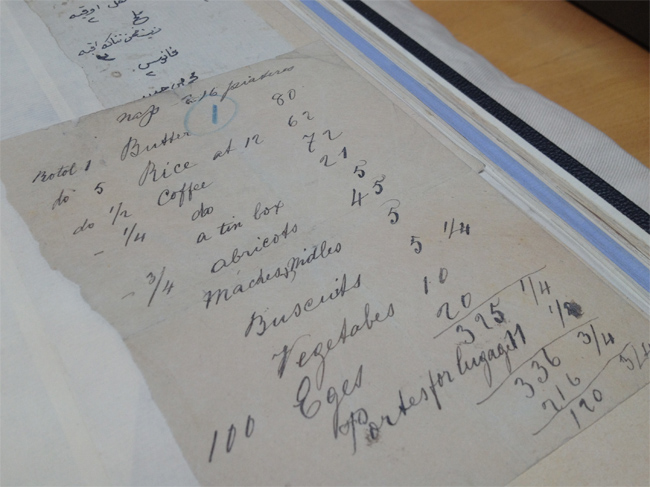 اوقيه
فانوس
piasters
1
Rotol 1 Butter 80
do 5 Rice at 12 62
do 1/2 Coffee 72
- 1/4 do 21
a tin box 5
- 3/4 abricots 45
Maches, nidles 5
Buscuits 5 1/4
Vegetabes 10
100 Eges 20
325 1/4
Portes for lugage 11 1/2
336 3/4
216
120 3/4